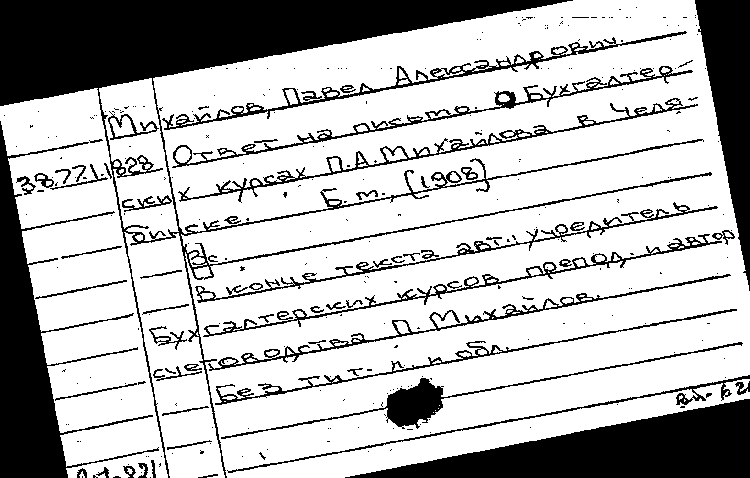 Михайлов, Павел Александрович.
38.771.1828 Ответ на письмо. О Бухгалтер-
ских курсах П.А. Михайлова в Челя-
бинске. Б.м., [1908]
[3]с.
В конце текста авт.: учредитель
Бухгалтерских курсов, препод. и автор
счетоводства П. Михайлов.
Без тит. л. и обл.